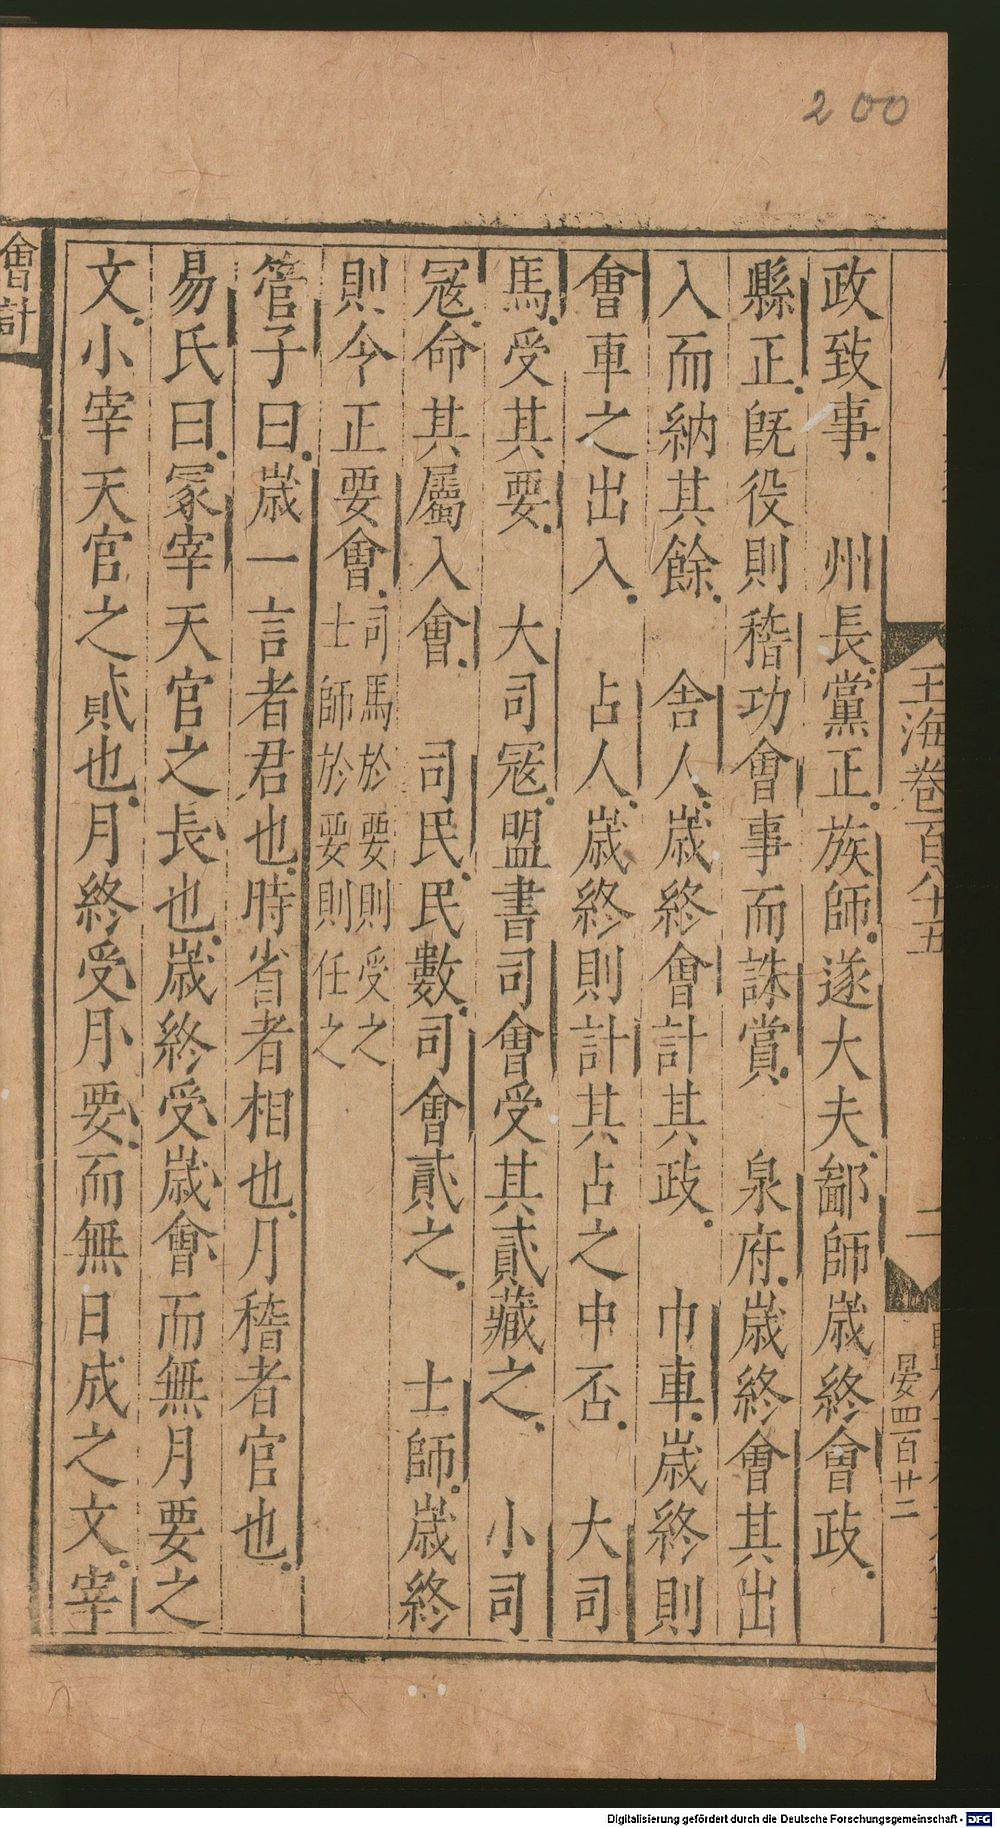 200
玉海卷百八十五
二
晏四百廿二
政致事　州長黨正族師遂大夫鄙師歲終會政
縣正旣役則稽功會事而誅賞　泉府歲終會其出
入而納其餘　舍人歲終會計其政　巾車歲終則
會車之出入　占人歲終則計其占之中否　大司
馬受其要　大司寇盟書司會受其貳藏之　小司
寇命其屬入會　司民民數司會貳之　士師歲終
則令正要會司馬於要則受之士師於要則任之
管子曰歲一言者君也時省者相也月稽者官也
易氏曰冢宰天官之長也歲終受歲會而無月要之
文小宰天官之貳也月終受月要而無日成之文宰
會計
Digitalisierung gefördert durch die Deutsche Forschungsgemeinschaft - DFG